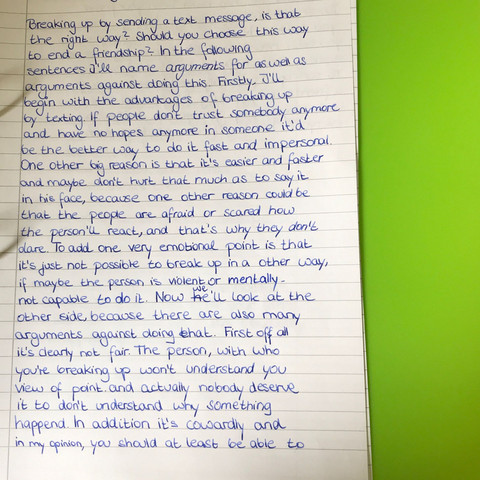 Breaking up by sending a text message, is that
the right way? Should you choose this way
to end a friendship? In the following
sentences I'll name arguments for as well as
arguments against doing this. Firstly I'll
begin with the advantages of breaking up
by texting. If people don't trust somebody anymore
and have no hopes anymore in someone it'd
be the better way to do it fast and impersonal.
One other big reason is that it's easier and faster
and maybe don't hurt that much as to say it
in his face, because one other reason could be
that the people are afraid or scared how
the person'll react, and that's why they don't
dare. To add one very emotional point is that
it's just not possible to break up in a other way,
if maybe the person is violent or mentally
not capable to do it. Now we'll look at the
other side, because there are also many
arguments against doing that. First off all
it's clearly not fair. The person, with who
you're breaking up won't understand you
view of point and actually nobody deserve
it to don't understand why something
happend. In addition it's cowardly and
in my opinion, you should at least be able to